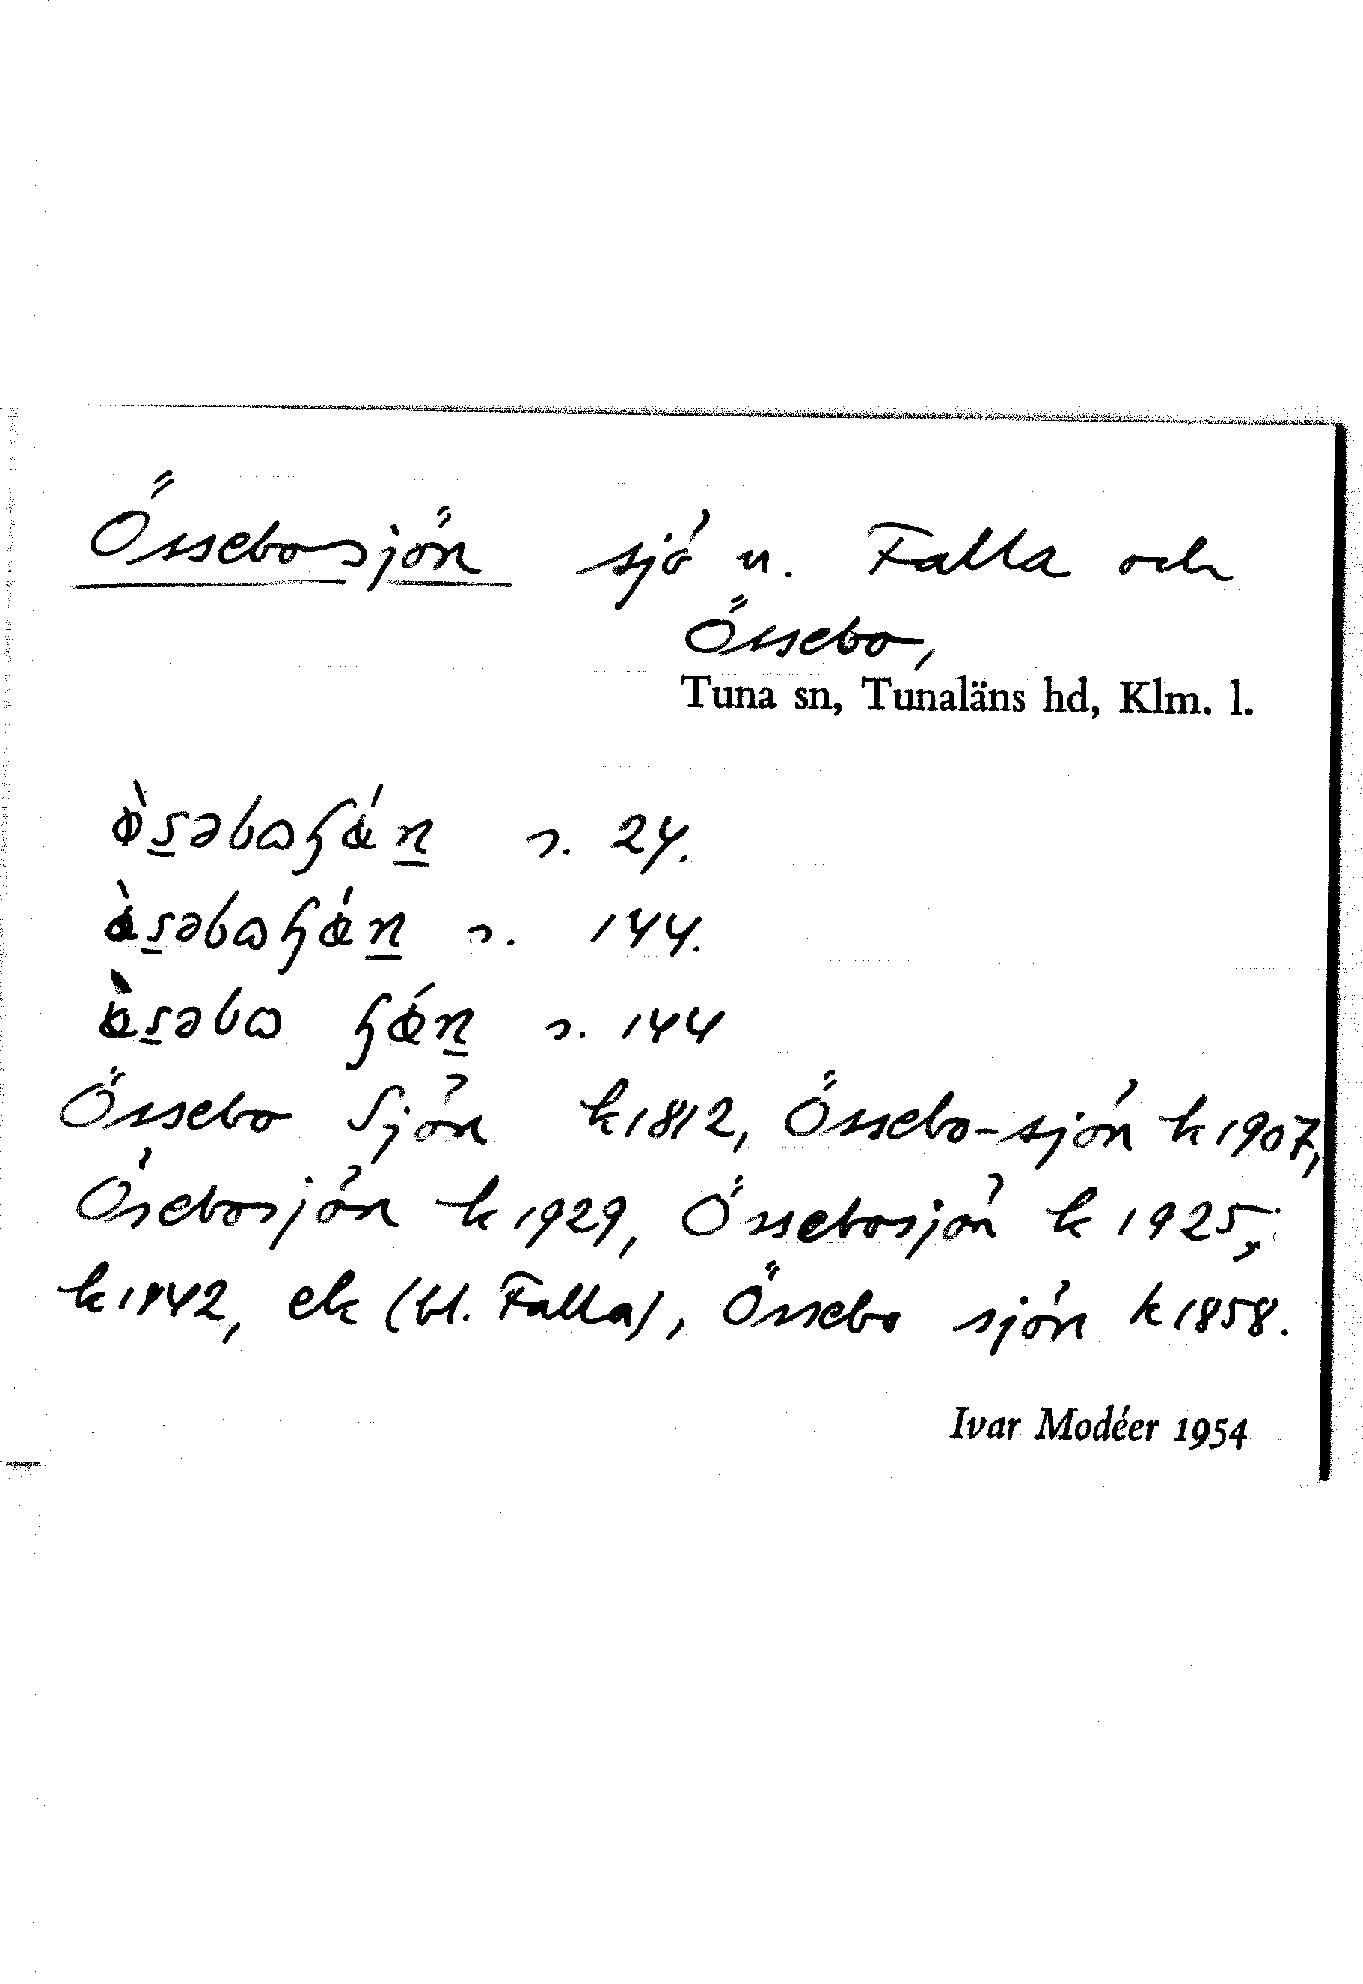 Össebosjön sjö u. Falla och
Össebo,
Tuna sn, Tunaläns hd, Klm. l.
s. 24.
s. 144.
s. 144
Össebo Sjön k 1812, Össebo-sjön k 1907,
Ösebosjön k 1929, Össebosjön k 1925,
k 1942, ek (bl. Falla), Össebo sjön k 1858.
Ivar Modéer 1954